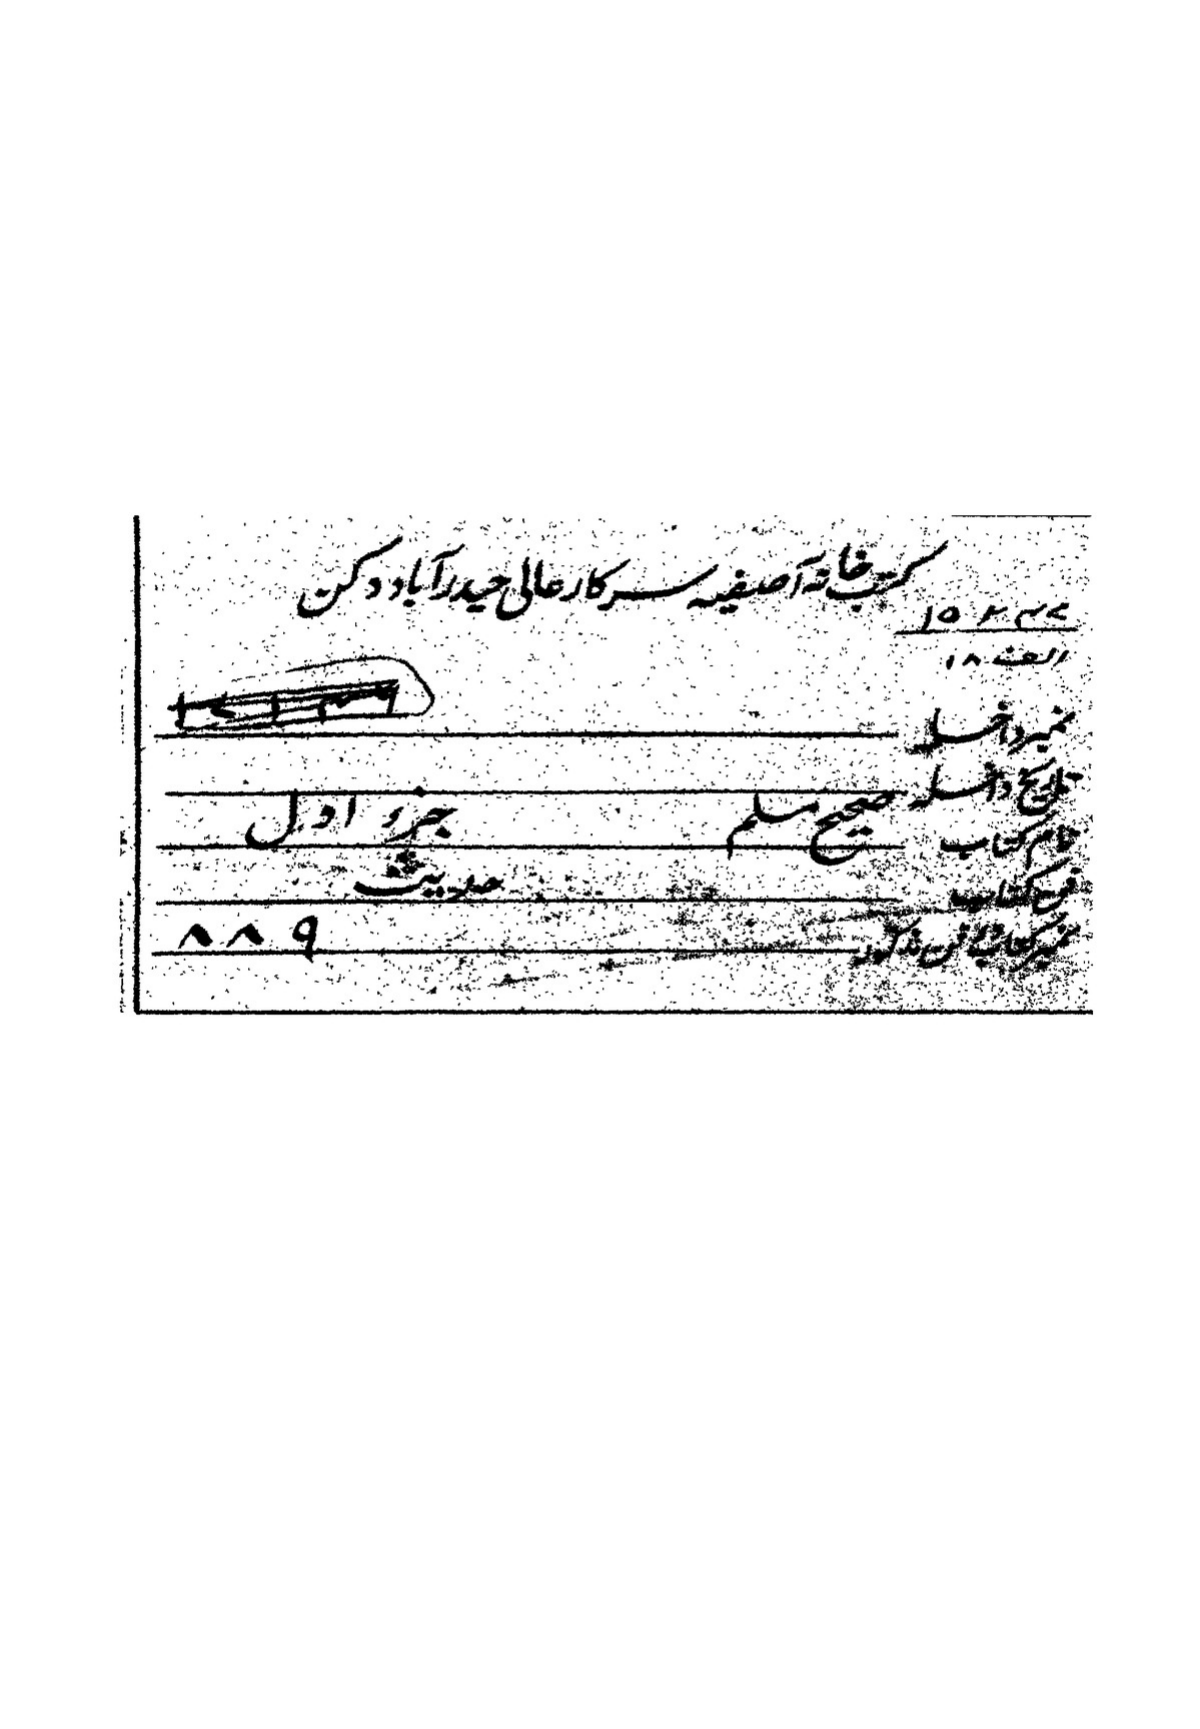 کتب خانہ آصفیہ سرکار عالی حیدرآباد دکن
الف ۱۸
نمبر داخلہ
تاریخ داخلہ
نام کتاب صحیح مسلم جزء اول
فن کتاب حدیث
نمبر کتاب فن مذکور ۸۸۹